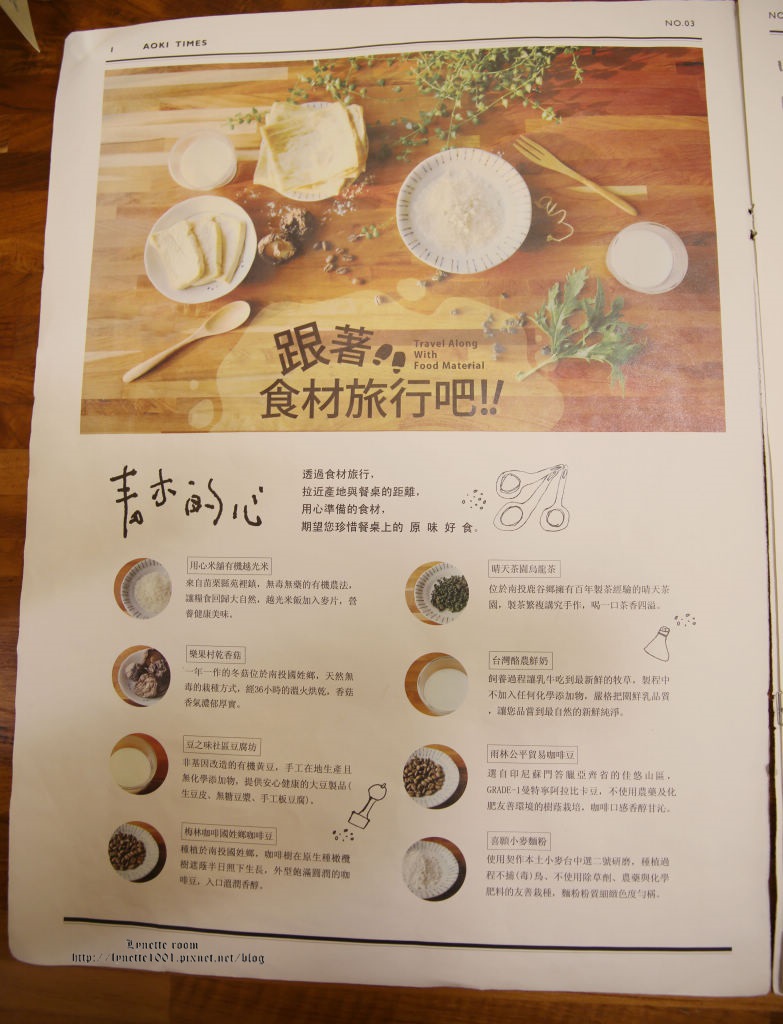 1 AOKI TIMES
NO.03
跟著
Travel Along
With
Food Material
食材旅行吧!!
青木的心
透過食材旅行,
拉近產地與餐桌的距離,
用心準備的食材,
期望您珍惜餐桌上的 原 味 好 食。
用心米舖有機越光米
來自苗栗縣苑裡鎮,無毒無藥的有機農法,
讓糧食回歸大自然,越光米飯加入麥片,營
養健康美味。
樂果村乾香菇
一年一作的冬菇位於南投國姓鄉,天然無
毒的栽種方式,經36小時的溫火烘乾,香菇
香氣濃郁厚實。
豆之味社區豆腐坊
非基因改造的有機黃豆,手工在地生產且
無化學添加物,提供安心健康的大豆製品(
生豆皮、無糖豆漿、手工板豆腐)。
梅林咖啡國姓鄉咖啡豆
種植於南投國姓鄉,咖啡樹在原生種橄欖
樹遮蔭半日照下生長,外型飽滿圓潤的咖
啡豆,入口溫潤香醇。
晴天茶園烏龍茶
位於南投鹿谷鄉擁有百年製茶經驗的晴天茶
園,製茶繁複講究手作,喝一口茶香四溢。
台灣酪農鮮奶
飼養過程讓乳牛吃到最新鮮的牧草,製程中
不加入任何化學添加物,嚴格把關鮮乳品質
,讓您品嘗到最自然的新鮮純淨。
雨林公平貿易咖啡豆
選自印尼蘇門答臘亞齊省的佳悠山區,
GRADE-1曼特寧阿拉比卡豆,不使用農藥及化
肥友善環境的樹蔭栽培,咖啡口感香醇甘沁。
喜願小麥麵粉
使用契作本土小麥台中選二號研磨,種植過
程不捕(毒)鳥、不使用除草劑、農藥與化學
肥料的友善栽種,麵粉粉質細緻色度勻稱。
Lynette room
http://lynette1001.pixnet.net/blog
NO